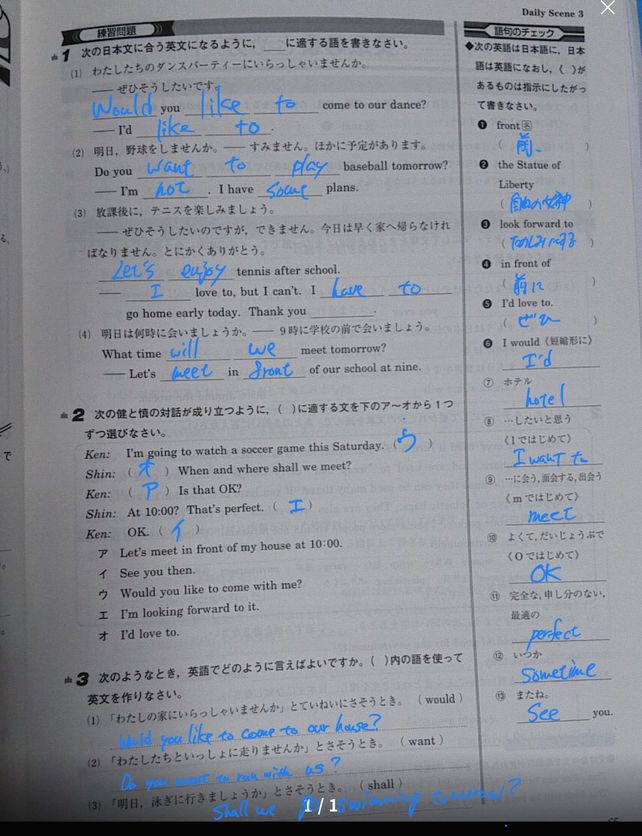 Daily Scene 3
練習問題
1 次の日本文に合う英文になるように，＿＿に適する語を書きなさい。
(1) わたしたちのダンスパーティーにいらっしゃいませんか。
―― ぜひそうしたいです。
Would you like to come to our dance?
―― I'd like to .
(2) 明日，野球をしませんか。―― すみません。ほかに予定があります。
Do you want to play baseball tomorrow?
―― I'm not . I have some plans.
(3) 放課後に，テニスを楽しみましょう。
―― ぜひそうしたいのですが，できません。今日は早く家へ帰らなけれ
ばなりません。とにかくありがとう。
Let's enjoy tennis after school.
―― I love to, but I can't. I have to
go home early today. Thank you ＿＿.
(4) 明日は何時に会いましょうか。―― 9時に学校の前で会いましょう。
What time will we meet tomorrow?
―― Let's meet in front of our school at nine.
2 次の健と慎の対話が成り立つように，( )に適する文を下のア～オから1つ
ずつ選びなさい。
Ken: I'm going to watch a soccer game this Saturday. ( ウ )
Shin: ( オ ) When and where shall we meet?
Ken: ( ア ) Is that OK?
Shin: At 10:00? That's perfect. ( エ )
Ken: OK. ( イ )
ア Let's meet in front of my house at 10:00.
イ See you then.
ウ Would you like to come with me?
エ I'm looking forward to it.
オ I'd love to.
3 次のようなとき，英語でどのように言えばよいですか。( )内の語を使って
英文を作りなさい。
(1) 「わたしの家にいらっしゃいませんか」とていねいにさそうとき。 ( would )
Would you like to come to our house?
(2) 「わたしたちといっしょに走りませんか」とさそうとき。 ( want )
Do you want to run with us?
(3) 「明日，泳ぎに行きましょうか」とさそうとき。 ( shall )
Shall we go swimming tomorrow?
1 / 1
語句のチェック
◆次の英語は日本語に，日本
語は英語になおし，( )が
あるものは指示にしたがっ
て書きなさい。
❶ front 名
( 前、 )
❷ the Statue of
Liberty
( 自由の女神 )
❸ look forward to
( たのしみにする )
❹ in front of
( 前に )
❺ I'd love to.
( ぜひ )
❻ I would《短縮形に》
I'd
⑦ ホテル
hotel
⑧ …したいと思う
《Iではじめて》
I want to
⑨ …に会う，面会する，出会う
《mではじめて》
meet
⑩ よくて，だいじょうぶで
《Oではじめて》
OK
⑪ 完全な，申し分のない，
最適の
perfect
⑫ いつか
sometime
⑬ またね。
See you.